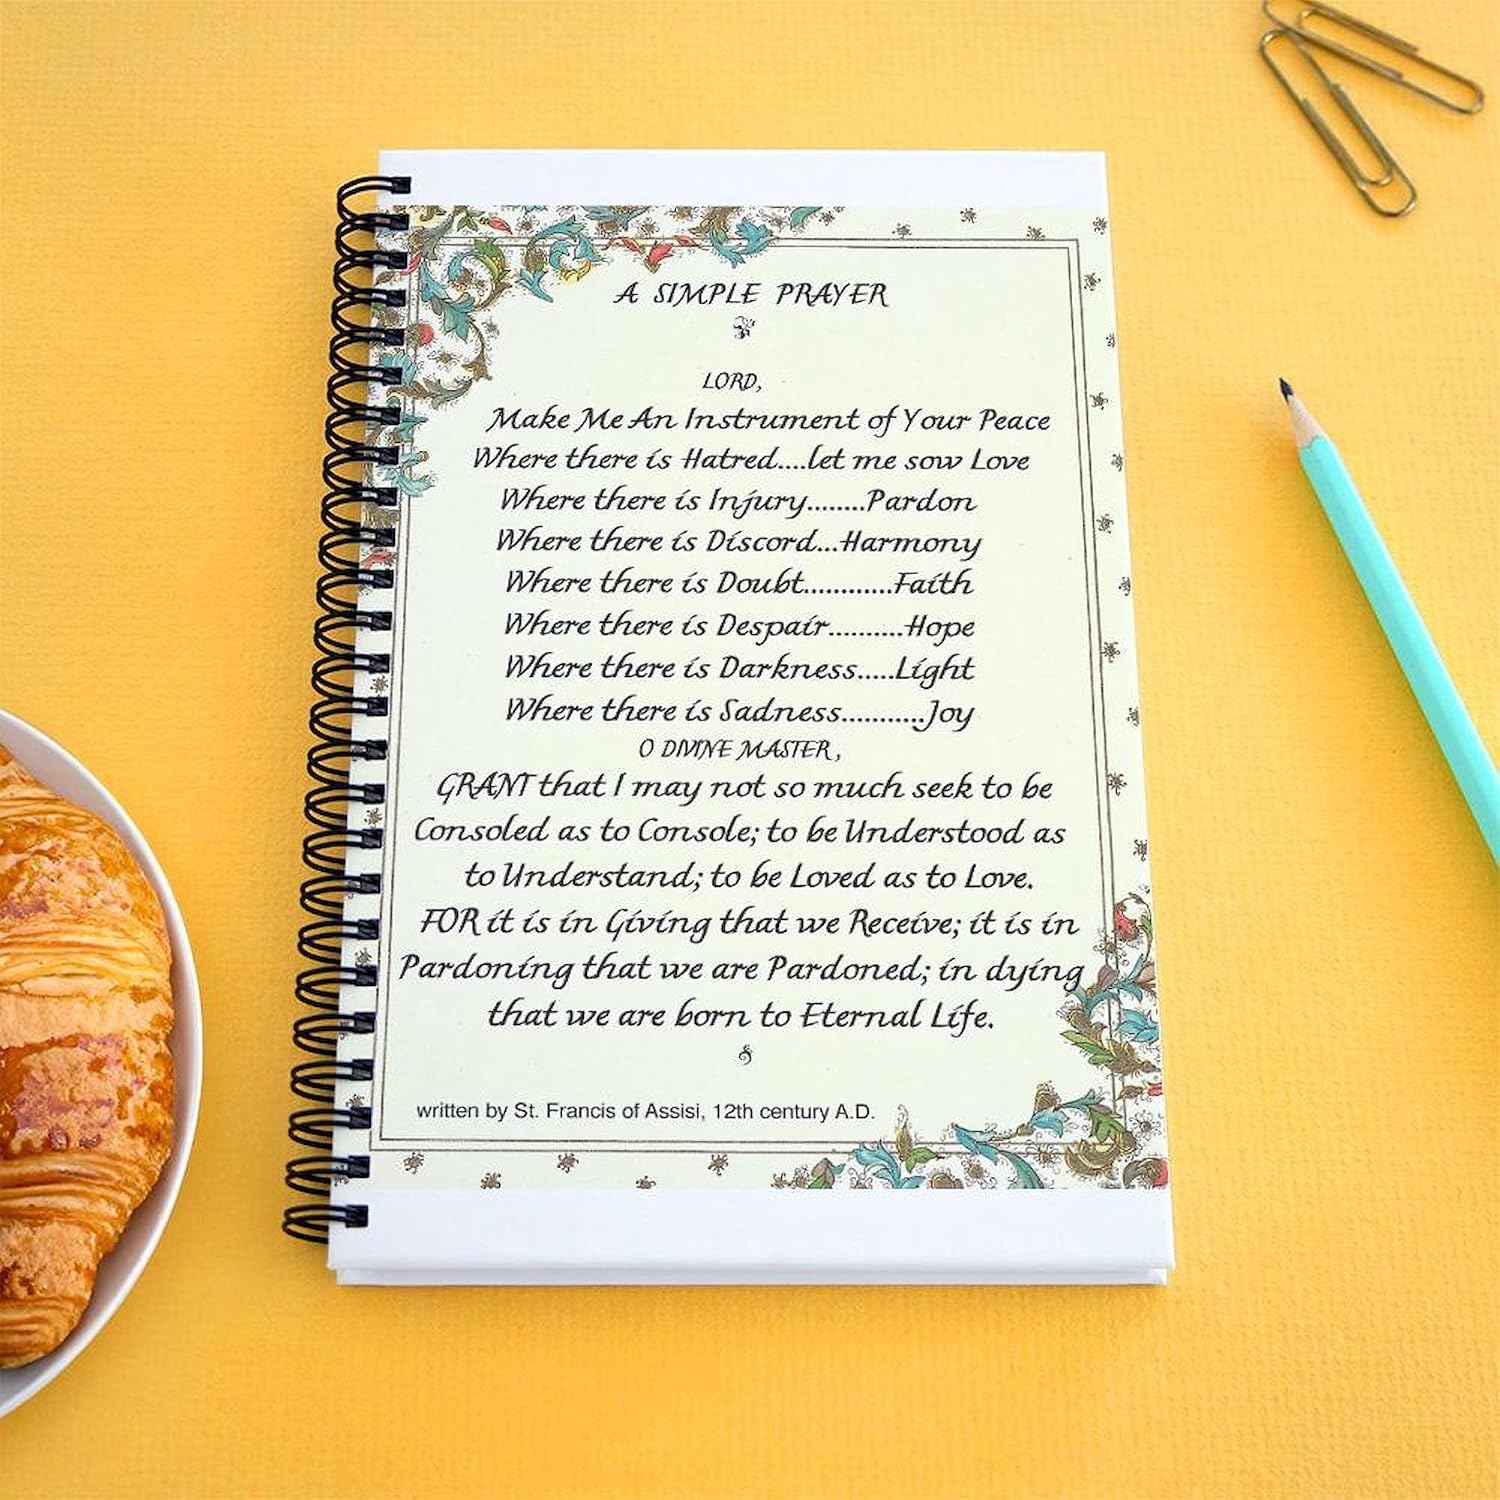 A SIMPLE PRAYER
LORD,
Make Me An Instrument of Your Peace
Where there is Hatred....let me sow Love
Where there is Injury........Pardon
Where there is Discord...Harmony
Where there is Doubt............Faith
Where there is Despair..........Hope
Where there is Darkness.....Light
Where there is Sadness...........Joy
O DIVINE MASTER,
GRANT that I may not so much seek to be
Consoled as to Console; to be Understood as
to Understand; to be Loved as to Love.
FOR it is in Giving that we Receive; it is in
Pardoning that we are Pardoned; in dying
that we are born to Eternal Life.
written by St. Francis of Assisi, 12th century A.D.